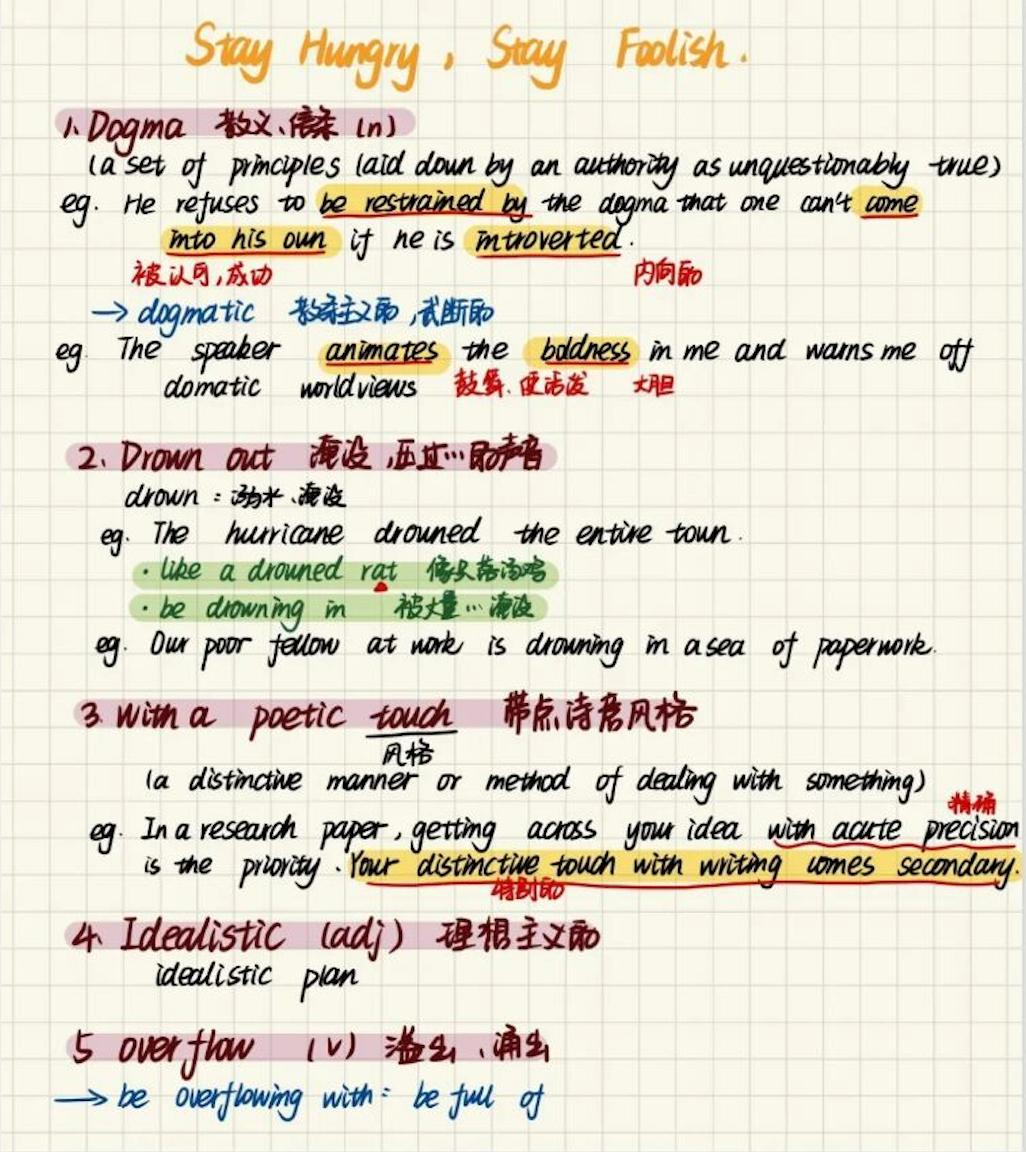 Stay Hungry, Stay Foolish.
1. Dogma 教义、信条 (n)
(a set of principles laid down by an authority as unquestionably true)
eg. He refuses to be restrained by the dogma that one can't come
into his own if he is introverted.
被认可,成功 内向的
→ dogmatic 教条主义的,武断的
eg. The speaker animates the boldness in me and warns me off
domatic worldviews 鼓舞.使活发 大胆
2. Drown out 淹没,压过…的声音
drown: 溺水、淹没
eg. The hurricane drowned the entire town.
· like a drowned rat 像只落汤鸡
· be drowning in 被大量…淹没
eg. Our poor fellow at work is drowning in a sea of paperwork.
3. With a poetic touch 带点诗意风格
风格
(a distinctive manner or method of dealing with something)
精确
eg. In a research paper, getting across your idea with acute precision
is the priority. Your distinctive touch with writing comes secondary.
特别的
4. Idealistic (adj) 理想主义的
idealistic plan
5 overflow (v) 溢出、涌出
→ be overflowing with: be full of